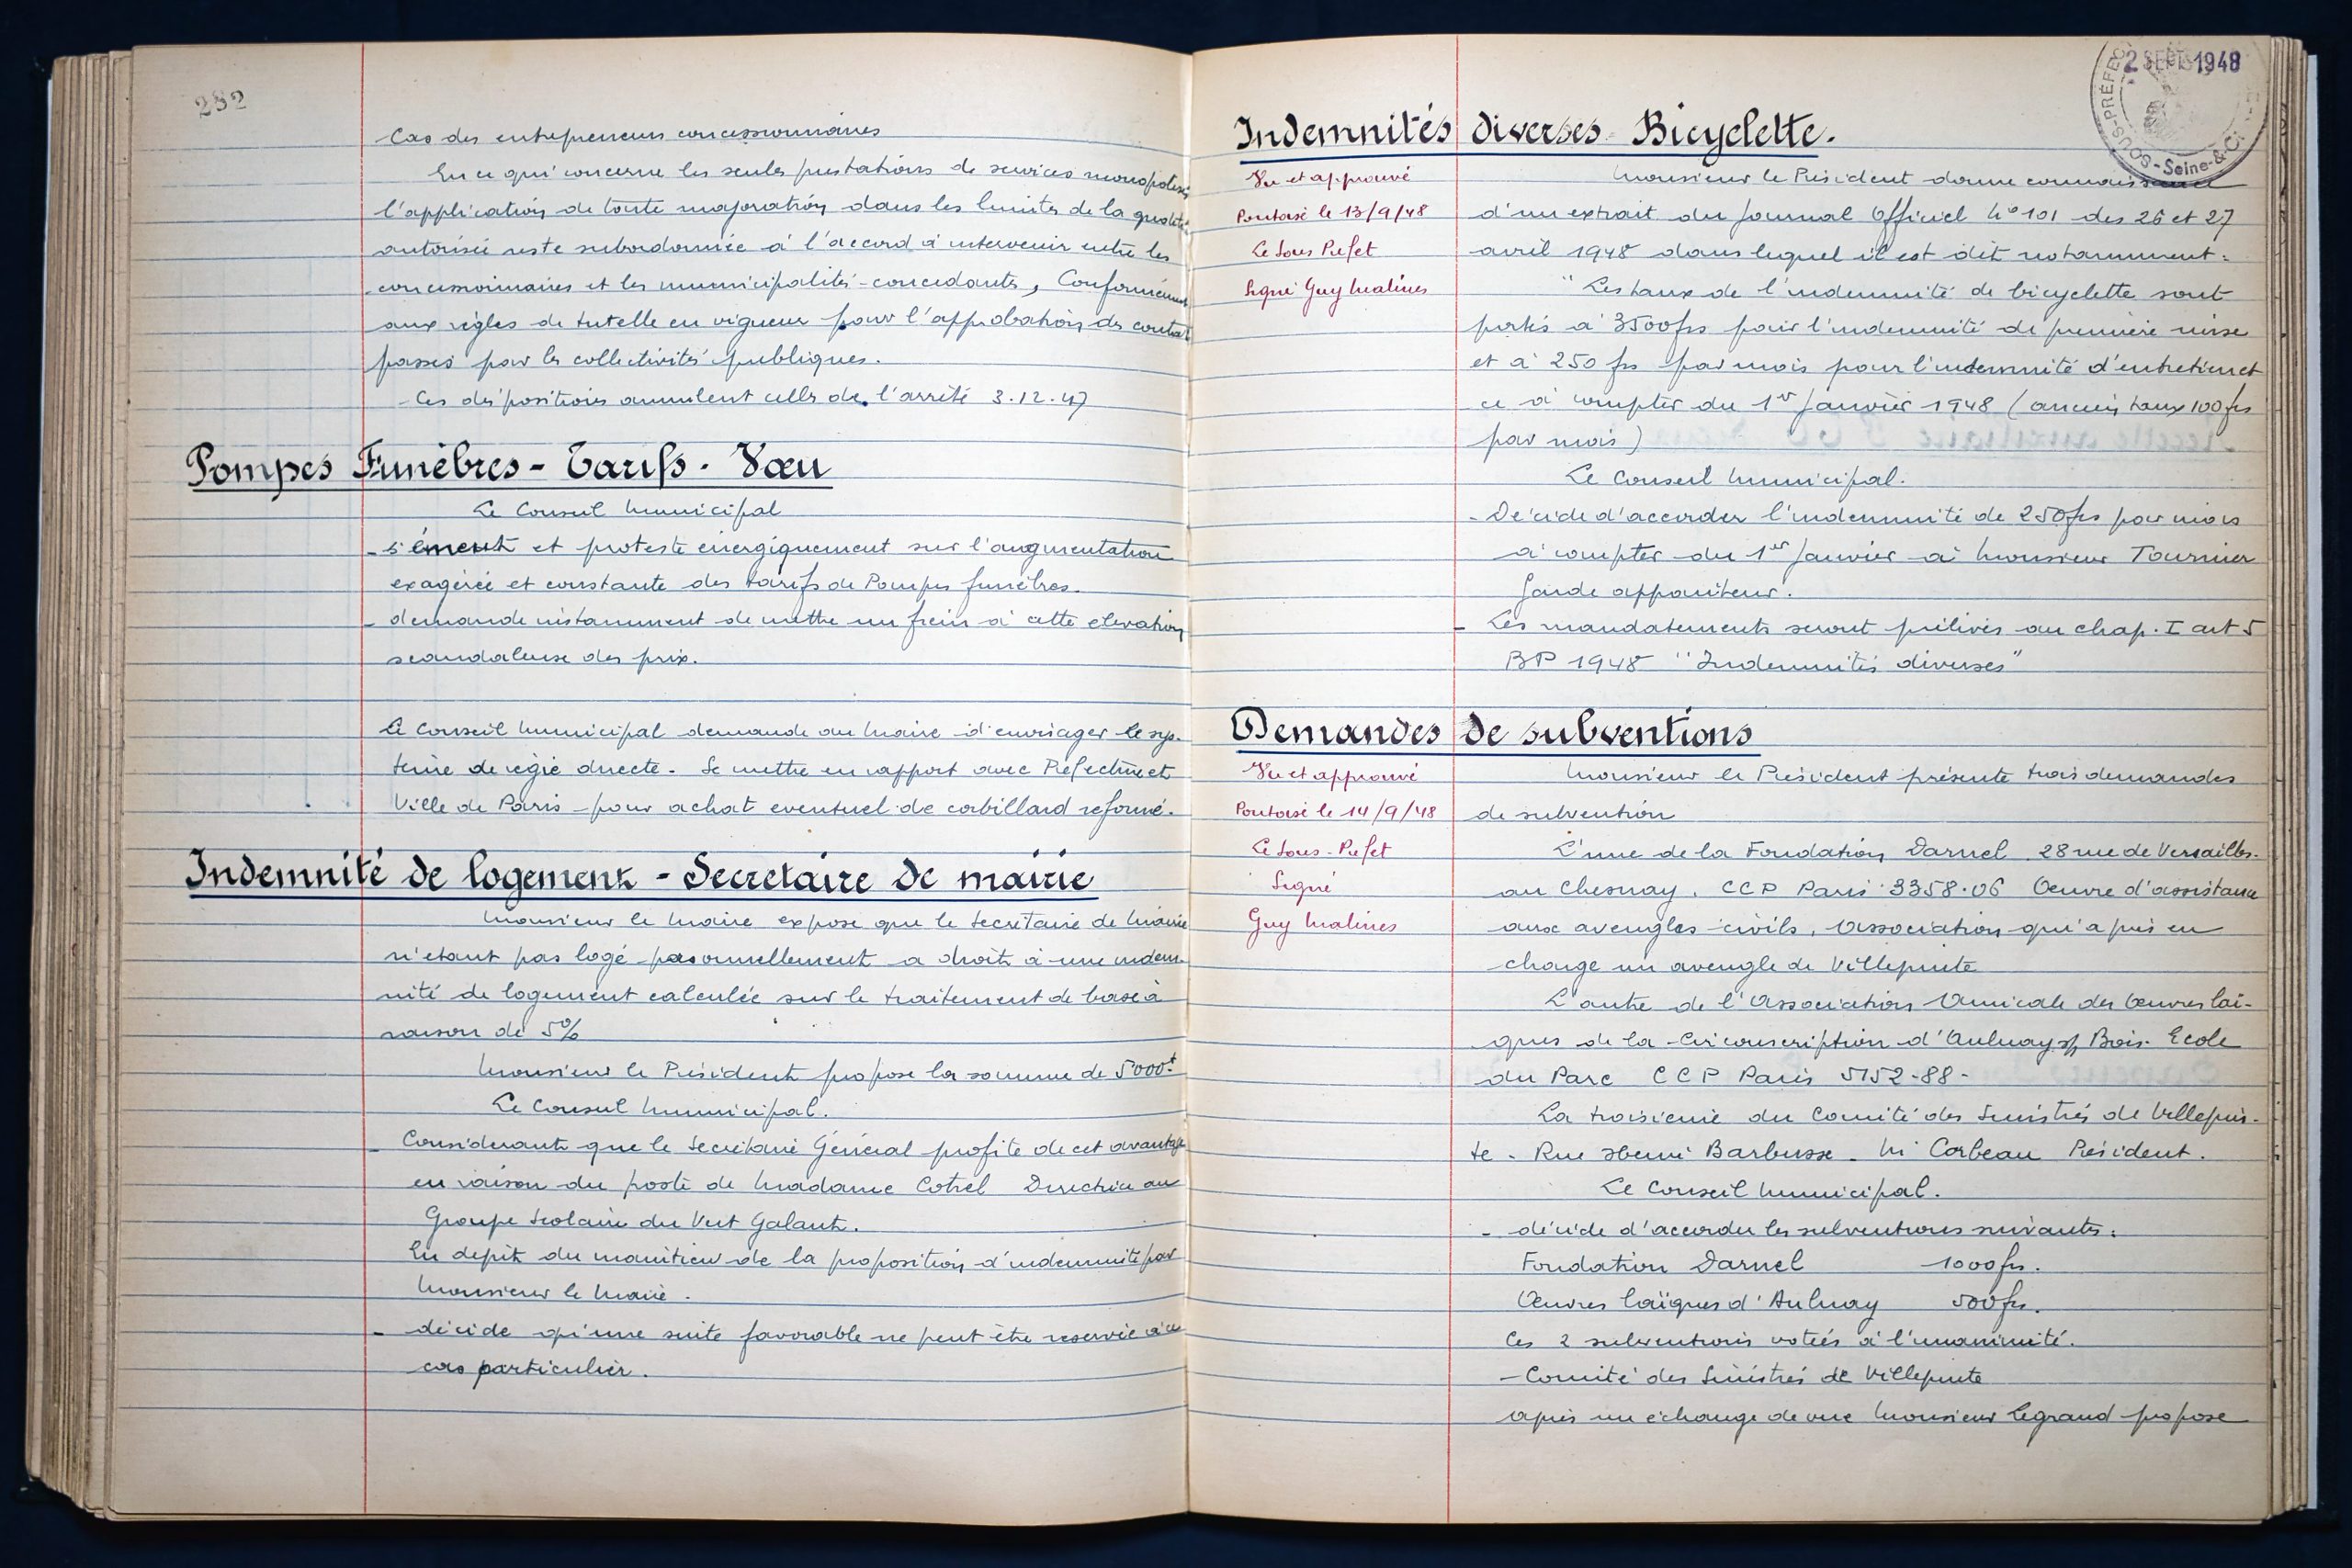 282
Cas des entrepreneurs concessionnaires
En ce qui concerne les seules prestations de services monopolisés
l'application de toute majoration dans les limites de la
autorisée reste subordonnée à l'accord à intervenir entre les
concessionnaires et les municipalités-concédants, Conformément
aux règles de tutelle en vigueur pour l'approbation des contrats
passés par les collectivités publiques.
- Ces dispositions annulent celles de l'arrêté 3.12.47
Pompes Funèbres - Tarifs. Vœu
Le Conseil Municipal
- s'émeut et proteste énergiquement sur l'augmentation
exagérée et constante des tarifs de Pompes funèbres.
- demande instamment de mettre un frein à cette elevation
scandaleuse des prix.
Le Conseil Municipal demande au Maire d'envisager le sys-
tème de régie directe. Se mettre en rapport avec Préfecture et
Ville de Paris pour achat eventuel de corbillard reformé.
Indemnité de logement - Secretaire de mairie
Monsieur le Maire expose que le Secrétaire de Mairie
n'etant pas logé personnellement a droit à une indem-
nité de logement calculée sur le traitement de base à
raison de 5%
Monsieur le Président propose la somme de 5000f
Le Conseil Municipal.
- Considerant que le Secrétaire Général profite de cet avantage
en raison du poste de Madame Cotrel Directrice au
Groupe Scolaire du Vert Galant.
En depit du maintien de la proposition d'indemnité par
Monsieur le Maire.
- décide qu'une suite favorable ne peut être reservée à ce
cas particulier.
2 SEPT 1948
SOUS-PRÉFEC
Seine-&
Indemnités diverses - Bicyclette.
Vu et approuvé
Pontoise le 13/9/48
Le Sous Prefet
Signé Guy Malines
Monsieur le Président donne connaissance
d'un extrait du Journal Officiel N° 101 des 26 et 27
avril 1948 dans lequel il est dit notamment:
"Les taux de l'indemnité de bicyclette sont
portés à 3500frs pour l'indemnité de première mise
et à 250 frs par mois pour l'indemnité d'entretien et
ce à compter du 1er Janvier 1948 (ancien taux 100 frs
par mois)
Le Conseil Municipal.
- Décide d'accorder l'indemnité de 250frs par mois
à compter du 1er Janvier à Monsieur Tournier
Garde appariteur.
- Les mandatements seront prélevés au chap. I art 5
BP 1948 "Indemnités diverses"
Demandes de subventions
Vu et approuvé
Pontoise le 14/9/48
Le Sous-Prefet
Signé
Guy Malines
Monsieur le Président présente trois demandes
de subvention
L'une de la Fondation Darnel 28 rue de Versailles.
au Chesnay. CCP Paris 3358.06 Oeuvre d'assistance
aux aveugles civils, Association qui a pris en
charge un aveugle de Villepinte
L'autre de l'Association Amicale des Oeuvres laï-
ques de la Circonscription d'Aulnay s/ Bois. Ecole
du Parc CCP Paris 5152-88-
La troisième du Comité des Sinistrés de Villepin-
te. Rue Henri Barbusse. Mr Corbeau Président.
Le Conseil Municipal.
- décide d'accorder les subventions suivantes:
Fondation Darnel 1000frs.
Œuvres laïques d'Aulnay 500frs.
Ces 2 subventions votées à l'unanimité.
- Comité des Sinistrés de Villepinte
après un échange de vue Monsieur Legrand propose